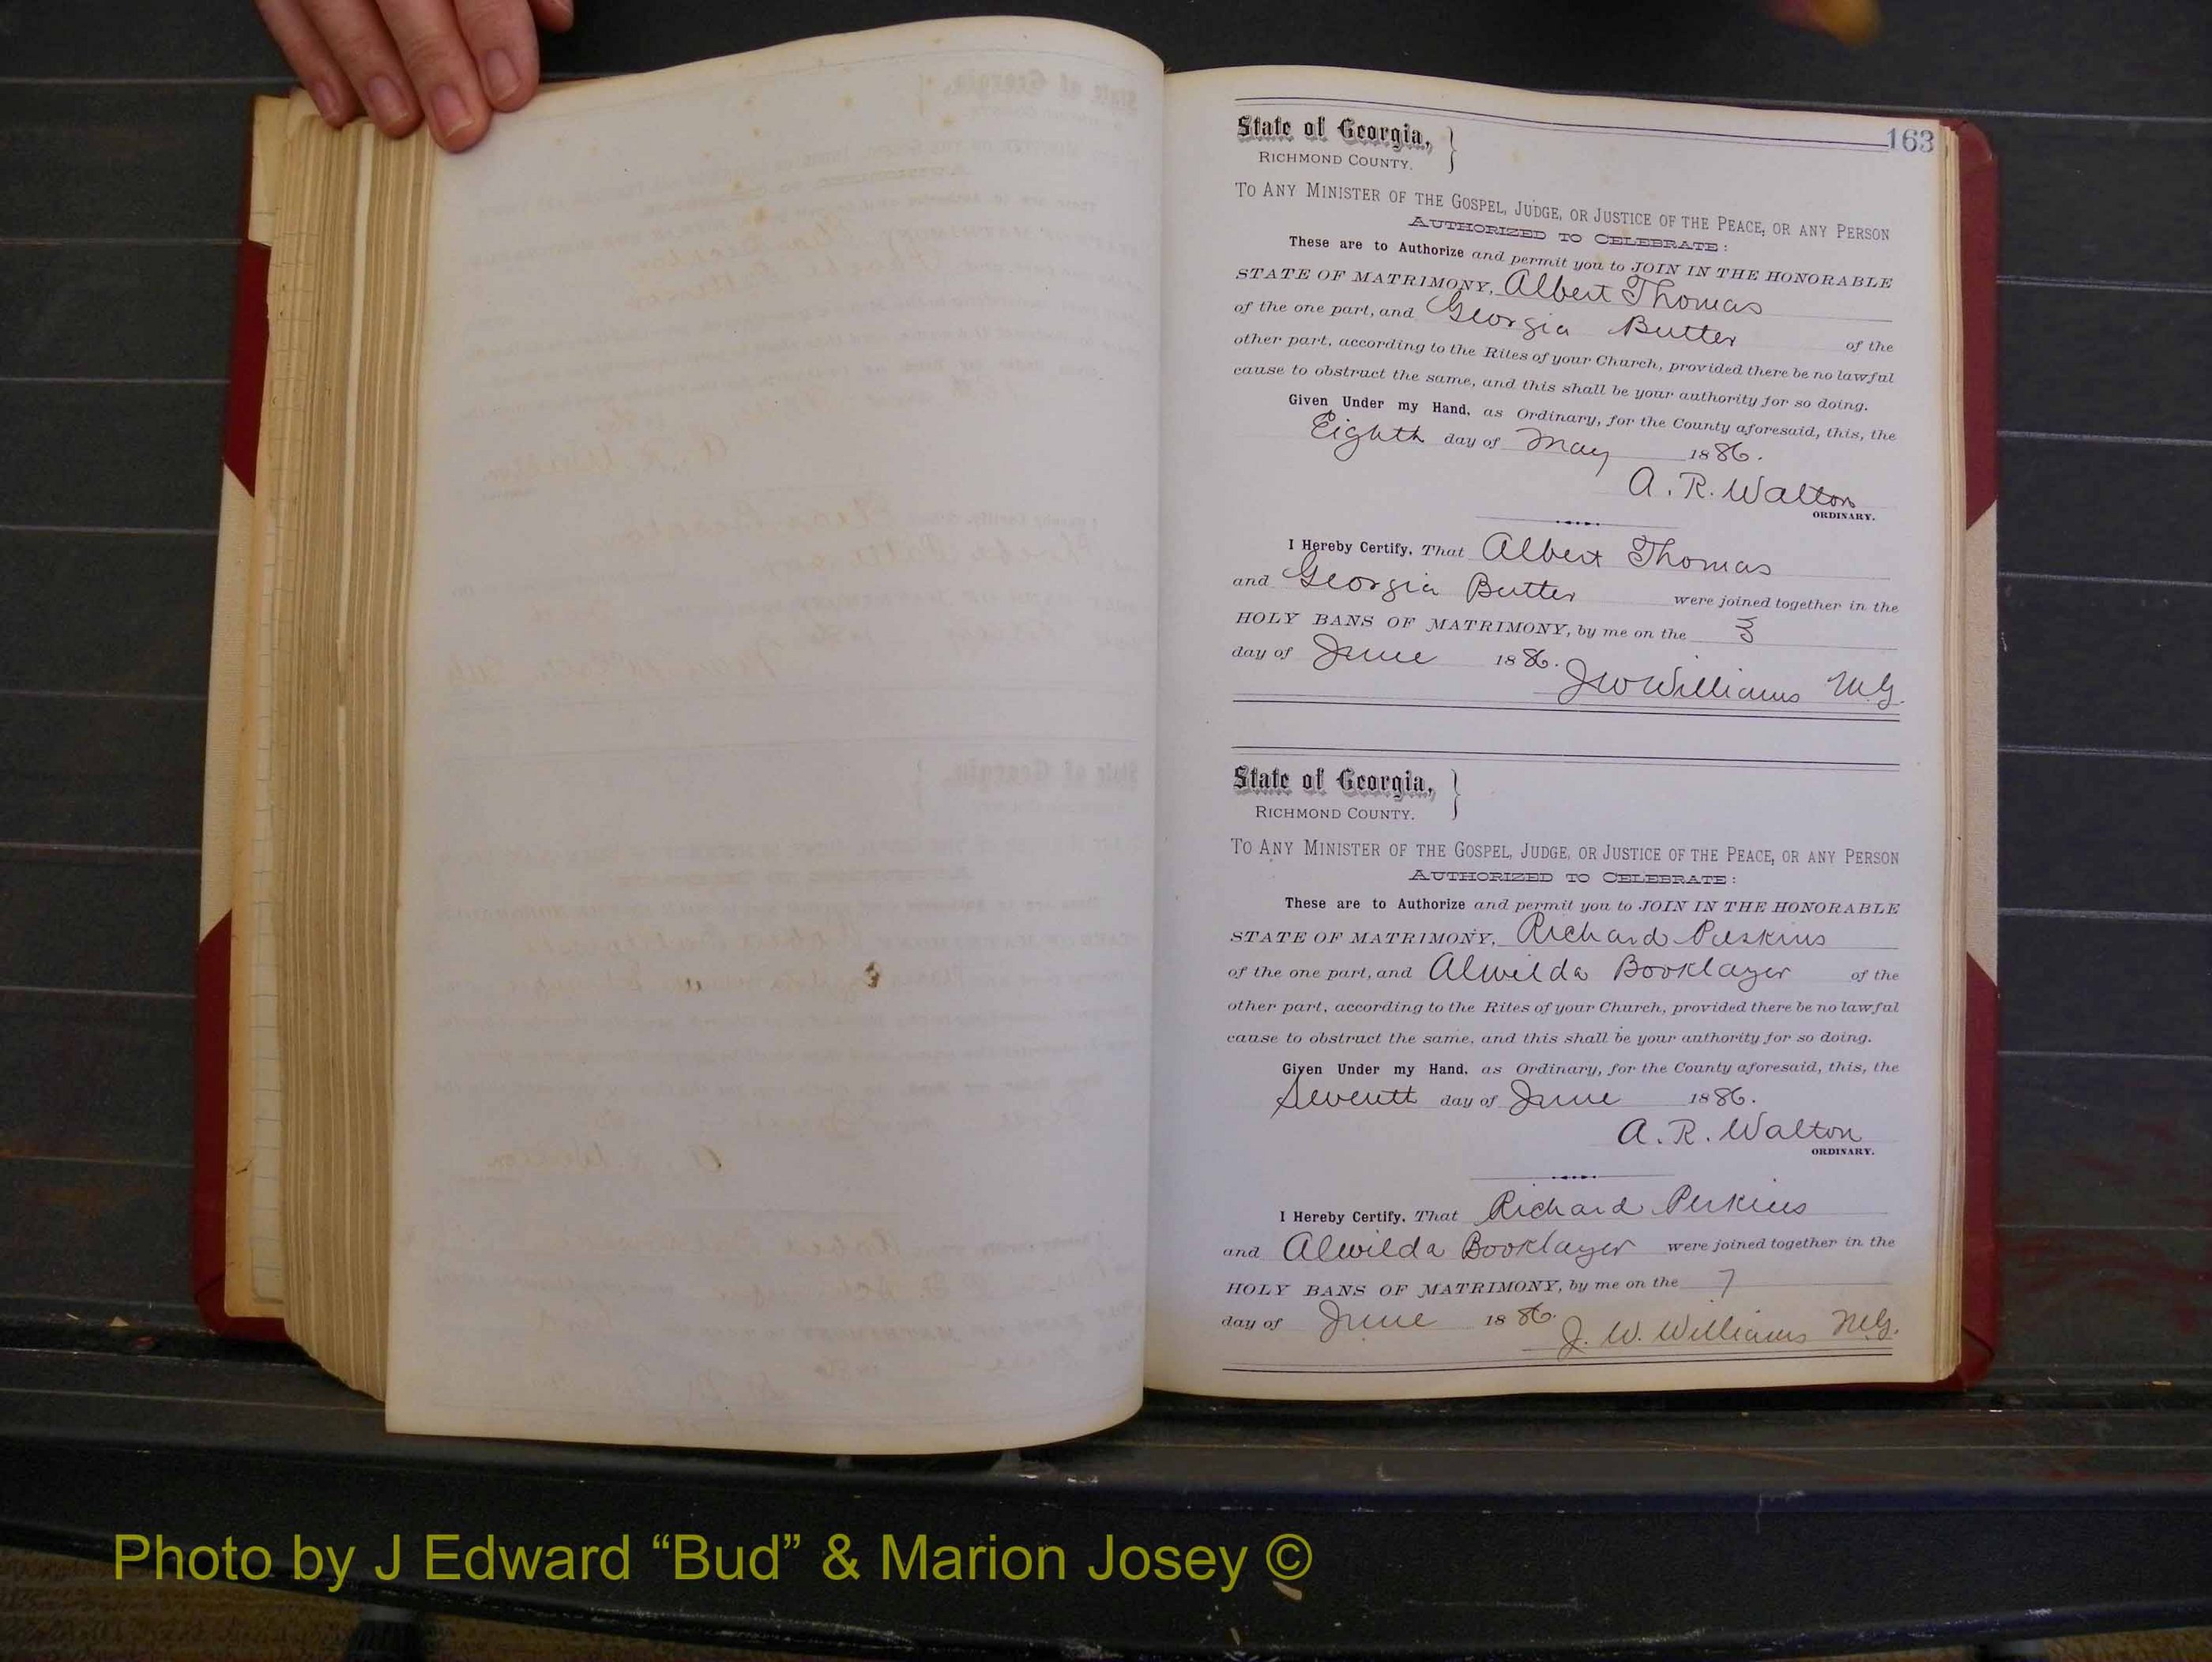 163
State of Georgia, }
RICHMOND COUNTY.
TO ANY MINISTER OF THE GOSPEL, JUDGE, OR JUSTICE OF THE PEACE, OR ANY PERSON
AUTHORIZED TO CELEBRATE:
These are to Authorize and permit you to JOIN IN THE HONORABLE
STATE OF MATRIMONY, Albert Thomas
of the one part, and Georgia Butter of the
other part, according to the Rites of your Church, provided there be no lawful
cause to obstruct the same, and this shall be your authority for so doing.
Given Under my Hand, as Ordinary, for the County aforesaid, this, the
Eighth day of May 1886.
A. R. Walton
ORDINARY.
I Hereby Certify, That Albert Thomas
and Georgia Butter were joined together in the
HOLY BANS OF MATRIMONY, by me on the 3
day of June 1886.
JW Williams M.G.
State of Georgia, }
RICHMOND COUNTY.
TO ANY MINISTER OF THE GOSPEL, JUDGE, OR JUSTICE OF THE PEACE, OR ANY PERSON
AUTHORIZED TO CELEBRATE:
These are to Authorize and permit you to JOIN IN THE HONORABLE
STATE OF MATRIMONY, Richard Perkins
of the one part, and Alwilda Booklayer of the
other part, according to the Rites of your Church, provided there be no lawful
cause to obstruct the same, and this shall be your authority for so doing.
Given Under my Hand, as Ordinary, for the County aforesaid, this, the
Seventh day of June 1886.
A. R. Walton
ORDINARY.
I Hereby Certify, That Richard Perkins
and Alwilda Booklayer were joined together in the
HOLY BANS OF MATRIMONY, by me on the 7
day of June 1886.
J. W. Williams M.G.
Photo by J Edward “Bud” & Marion Josey ©